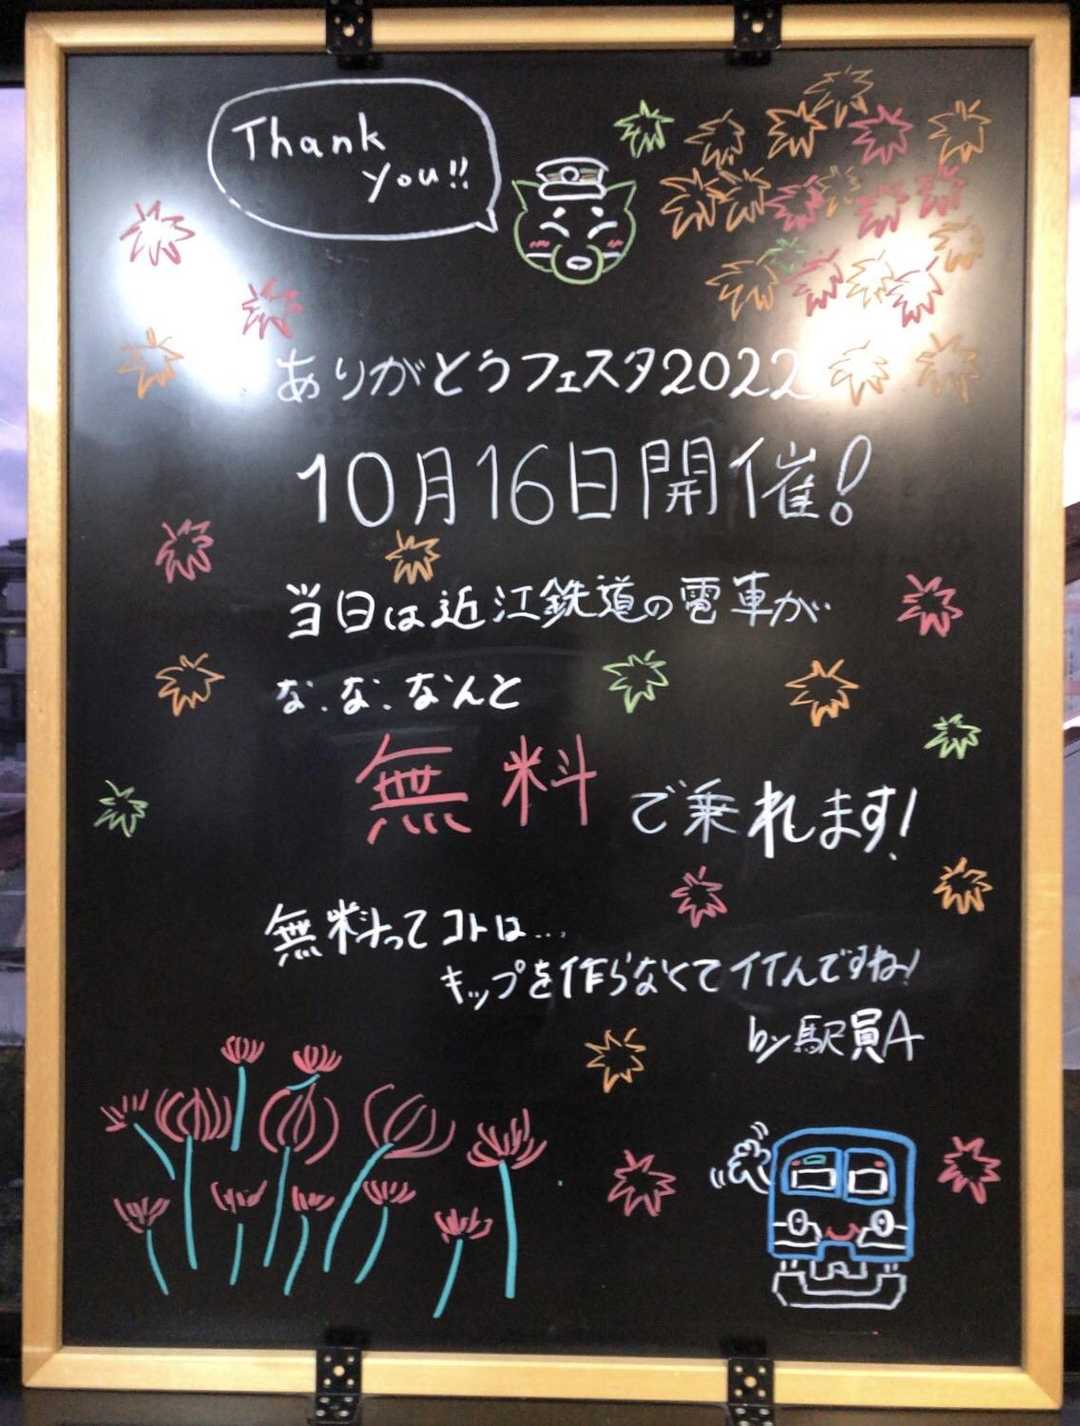 Thank
you!!
ありがとうフェスタ2022
10月16日開催!
当日は近江鉄道の電車が
な.な.なんと
無料で乗れます!
無料ってコトは...
キップを作らなくてイイんですね!
by駅員A